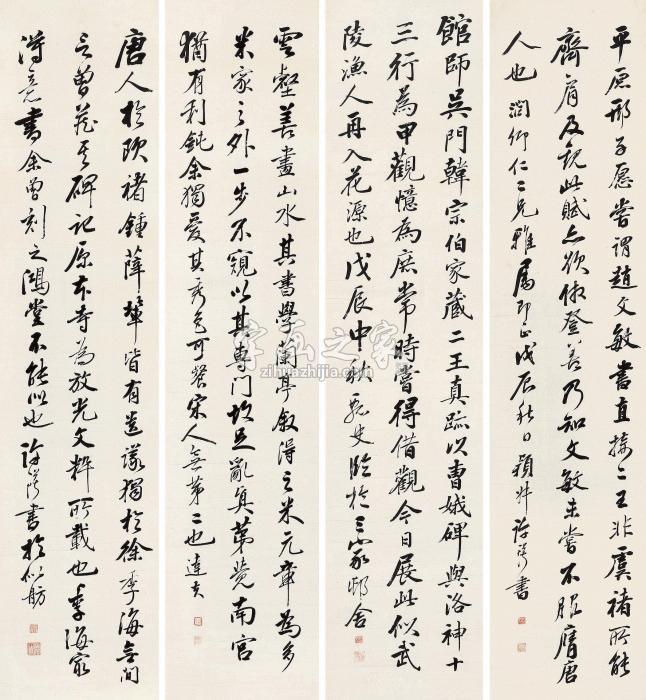 平原邢子愿嘗謂趙文敏書直接二王非虞褚所能
齊肩及觀此賦亦欲俶登善乃知文敏未嘗不服膺唐
人也 潤卿仁二兄雅屬即正戊辰秋日穎叔許澇書
館師吳門韓宗伯家藏二王真跡以曹娥碑與洛神十
三行為甲觀憶為庶常時嘗得借觀今日展此似武
陵漁人再入花源也戊辰中秋 史臨於三家邨舍
雲壑善畫山水其書學蘭亭敘得之米元章為多
米家之外一步不窺以其專門故足亂真第覺南宮
猶有利鈍余獨愛其秀色可餐宋人無第二也達夫
唐人於歐褚鍾薛輩皆有遺議獨於徐季海無間
言曾葬馬碑記原本奇為放光文粹所載也季海最
得意書余曾刻之鴻堂不能似也 書於似舫
字画之家
zihuazhijia.com